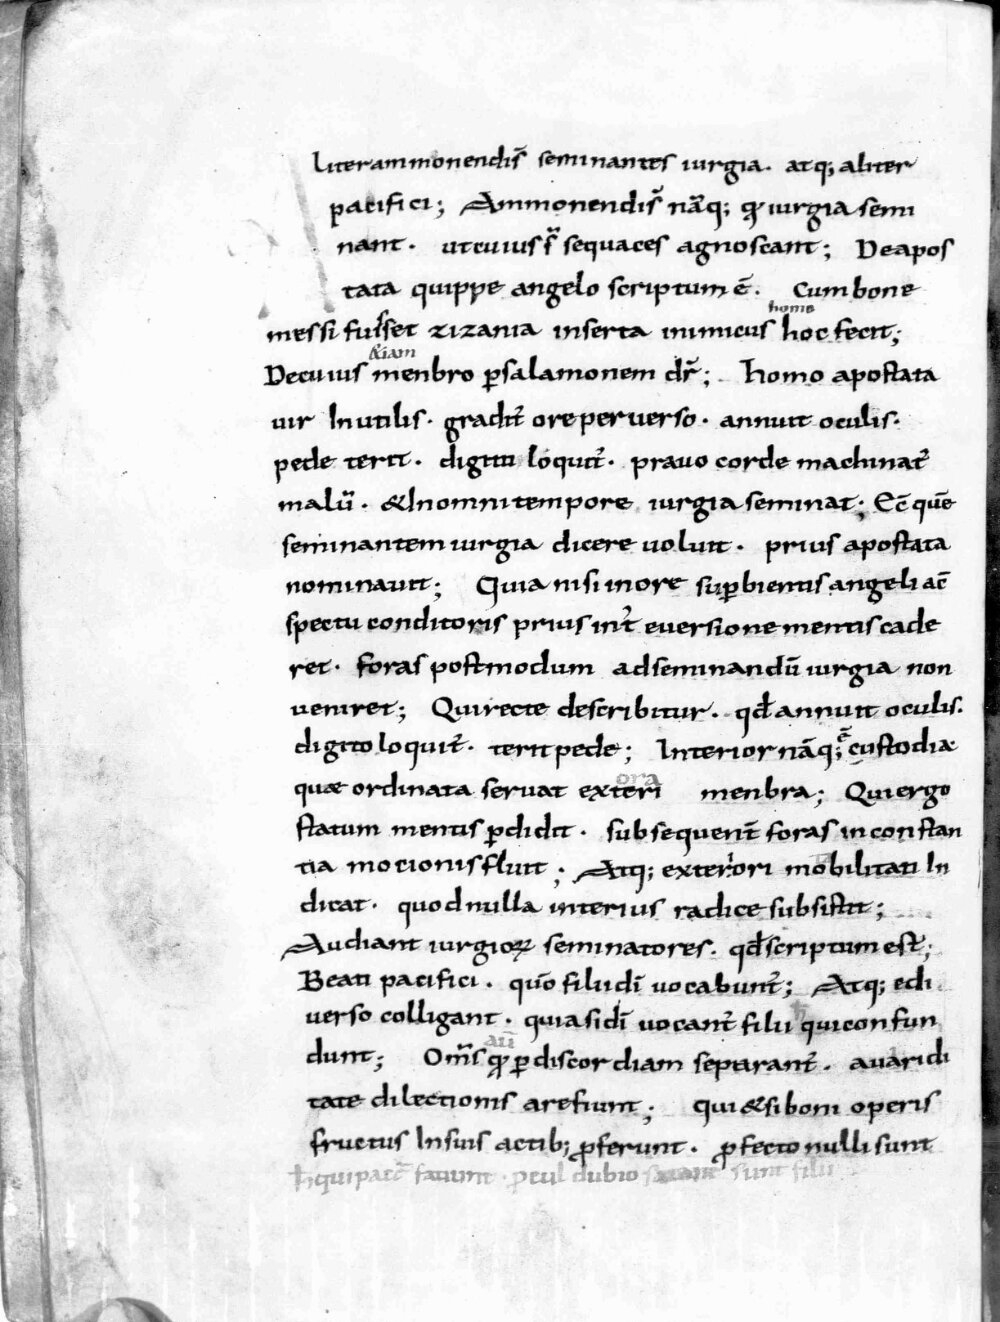 literammonendis̄ seminantes iurgia. atq; aliter
pacifici; Ammonendis̄ nāq; qđ iurgia semi
nant. utcuius s̄ sequaces agnoscant; Deapos
tata quippe angelo scriptum ē. Cumbone
homo
messi fuisset zizania inserta inimicus hoc fecit;
&iam
Decuius menbro ꝑsalamonem dr̄; homo apostata
uir Inutilis. gradit̄ ore peruerso. annuit oculis.
pede terit. digito loquit̄. prauo corde machinat̄
malū. &Inomni tempore iurgia seminat; Ecc̄ quē
seminantem iurgia dicere uoluit. prius apostata
nominauit; Quia nisi inore suꝑbientis angeli ac̄
spectu conditoris prius int̄ euersione mentis cade
ret. foras postmodum adseminandū iurgia non
ueniret; Quirecte describitur. qđ annuit oculis.
digito loquit̄. terit pede; Interior nāq; ē custodia
quae ordinata seruat exteri ora menbra; Qui ergo
statum mentis ꝑdidit. subsequent̄ foras in constan
tia mocionis fluit; Atq; exteriori mobilitati In
dicat. quod nulla interius radice subsistit;
Audiant iurgioꝝ seminatores. qđ scriptum est;
Beati pacifici. qūo filii dī uocabunt̄; Atq; edi
uerso colligant. quia si dī uocant̄ filii qui con fun
au̅
dunt; Om̄s qđ ꝑ discordiam separant̄. auaridi
tate dilectionis arefiunt; qui &si boni operis
fructus Insuis actib; ꝓferunt. ꝓfecto nulli sunt
qui pacē faciunt. ꝓcul dubio sunt filii